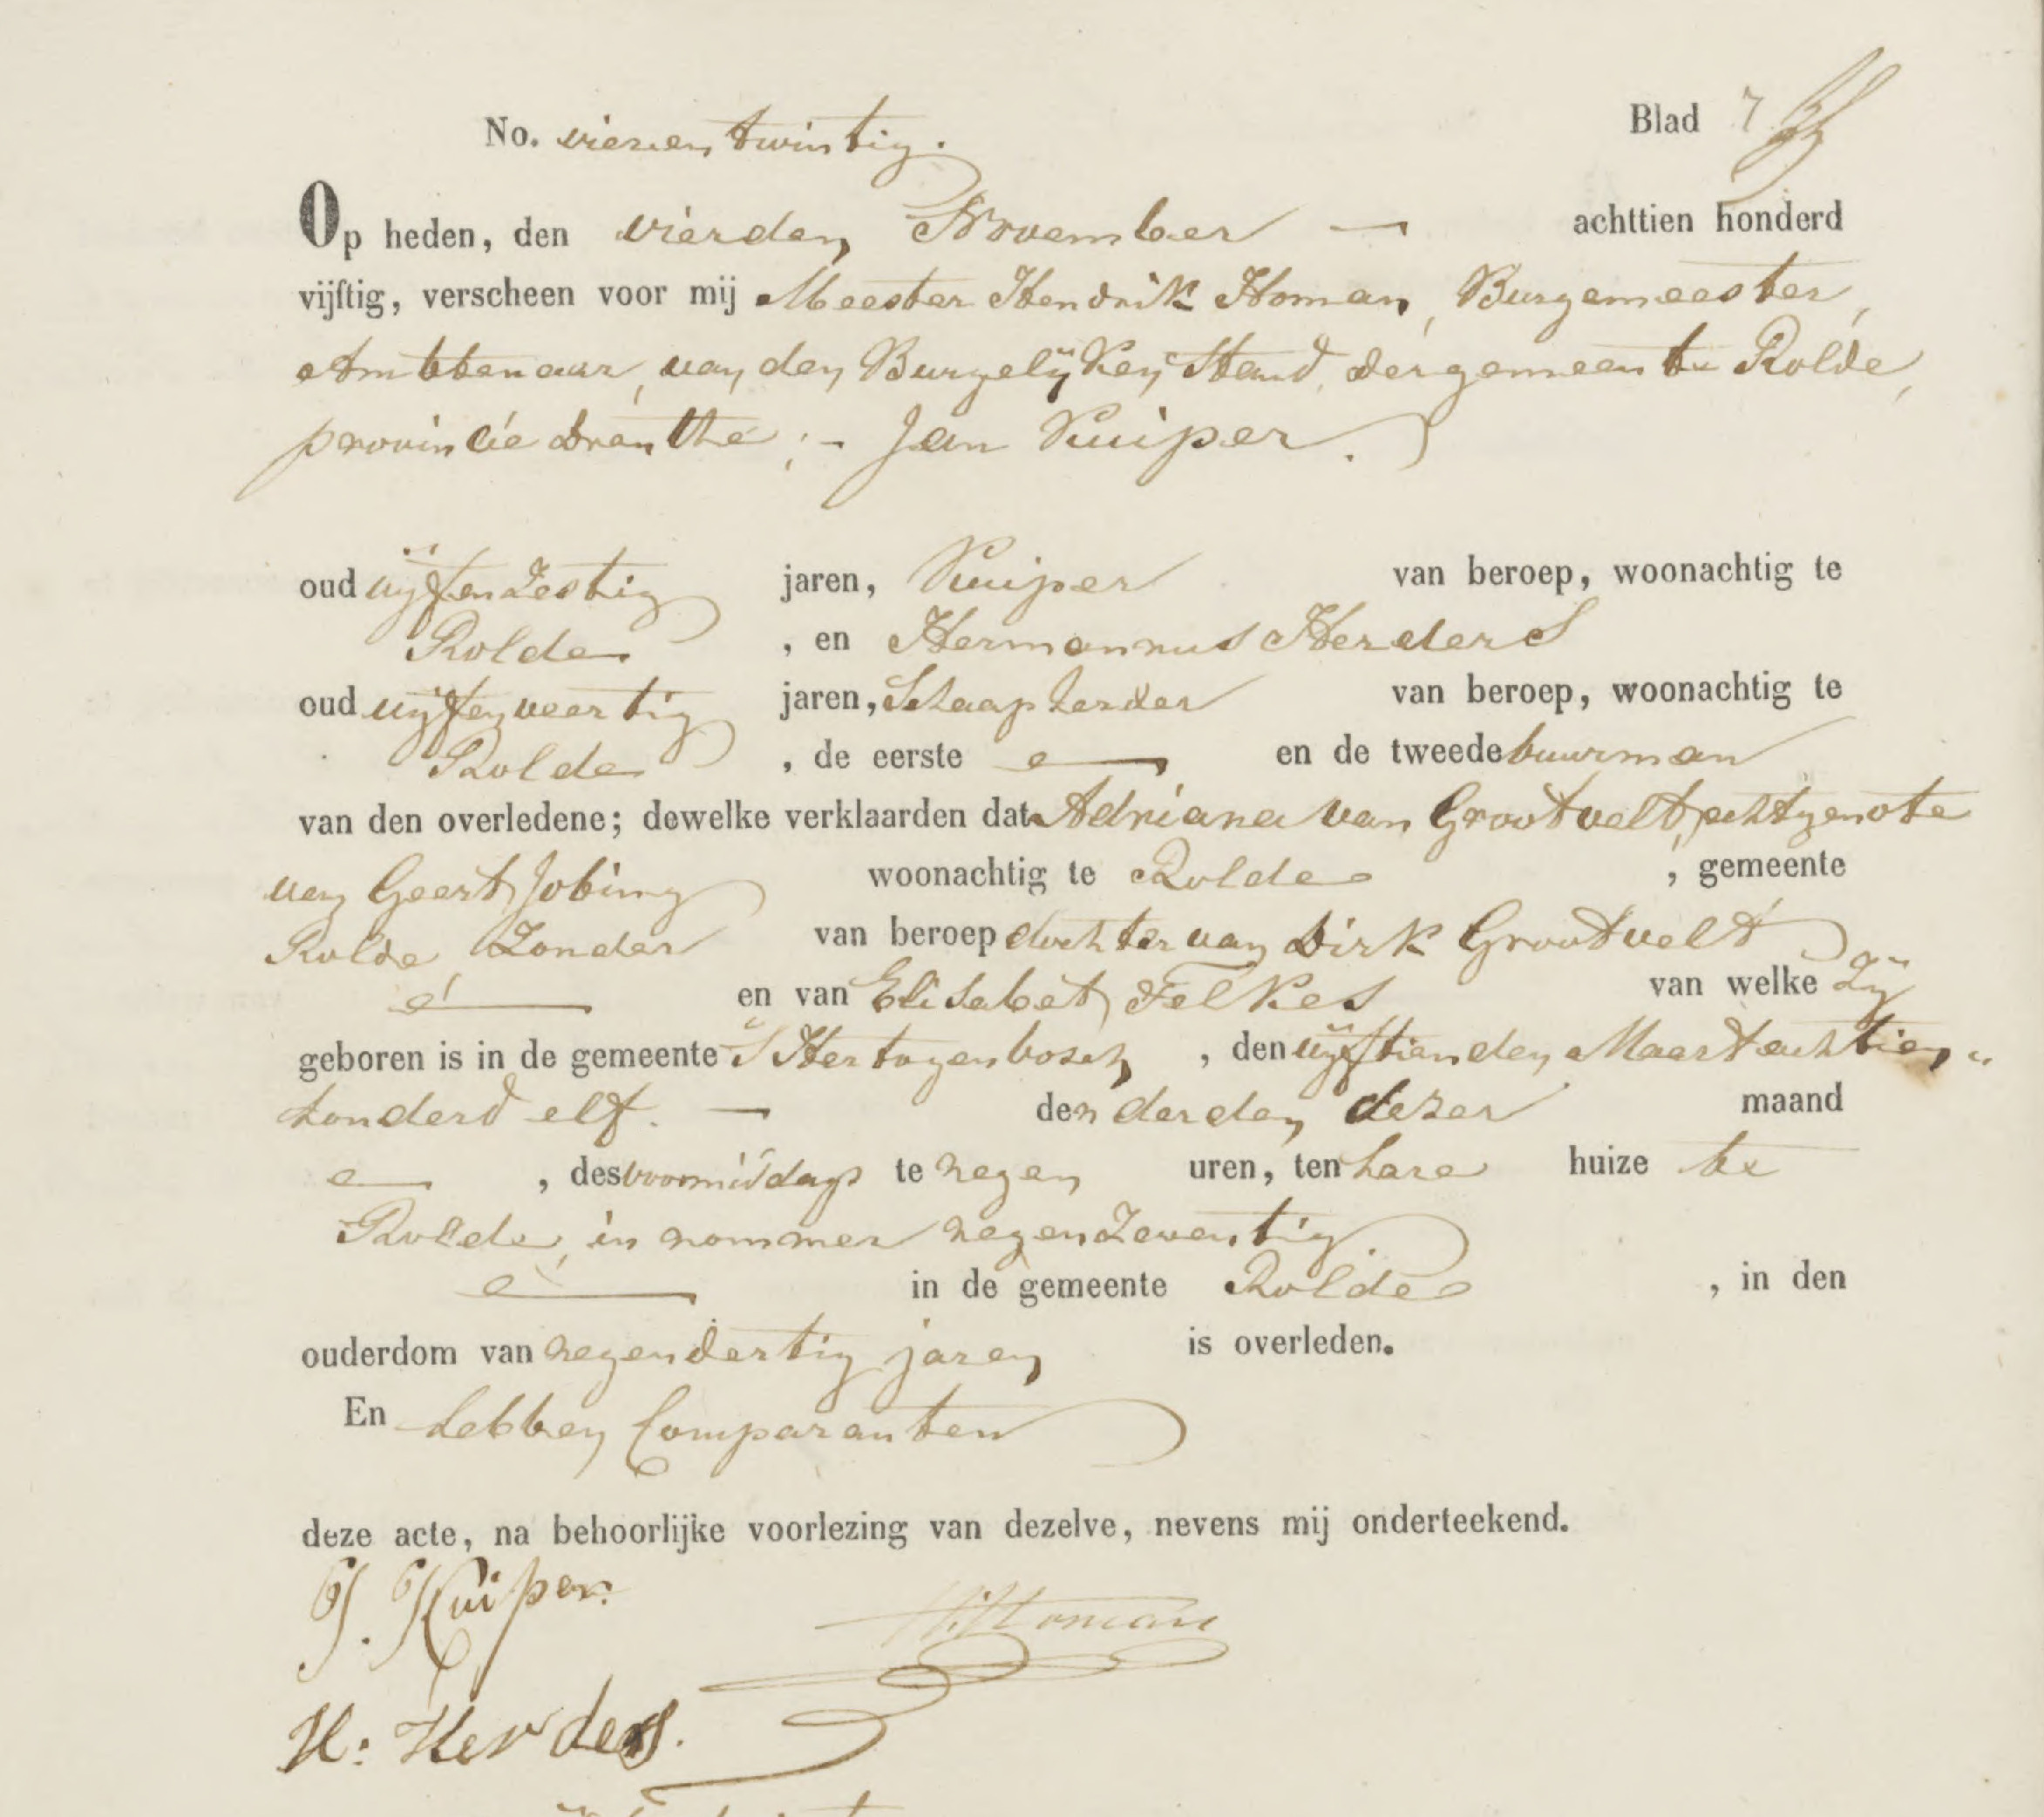 No. vierentwintig. Blad 7
Op heden, den vierden November — achttien honderd
vijftig, verscheen voor mij Meester Hendrik Homan, Burgemeester,
Ambtenaar van den Burgelijken Stand, der gemeente Rolde,
provincie Drenthe; - Jan Kuiper.
oud vijfenzestig jaren, Kuiper van beroep, woonachtig te
Rolde , en Hermannus Herders
oud vijfenveertig jaren, Schaapherder van beroep, woonachtig te
Rolde , de eerste — en de tweede buurman
van den overledene; dewelke verklaarden dat Adriana van Grootvelt, echtgenote
van Geert Jobing woonachtig te Rolde , gemeente
Rolde, Zonder van beroep dochter van Dirk Grootvelt
— en van Elisabet Felkes van welke Zij
geboren is in de gemeente S Hertogenbosch , den vijftienden Maart achttien "
honderd elf. — den derden dezer maand
— , des voormiddags te negen uren, ten hare huize te
Rolde, in nommer negenzeventig.
— in de gemeente Rolde , in den
ouderdom van negendertig jaren is overleden.
En hebben Comparanten
deze acte, na behoorlijke voorlezing van dezelve, nevens mij onderteekend.
J. Kuiper.
H. Homan
H: Herders.